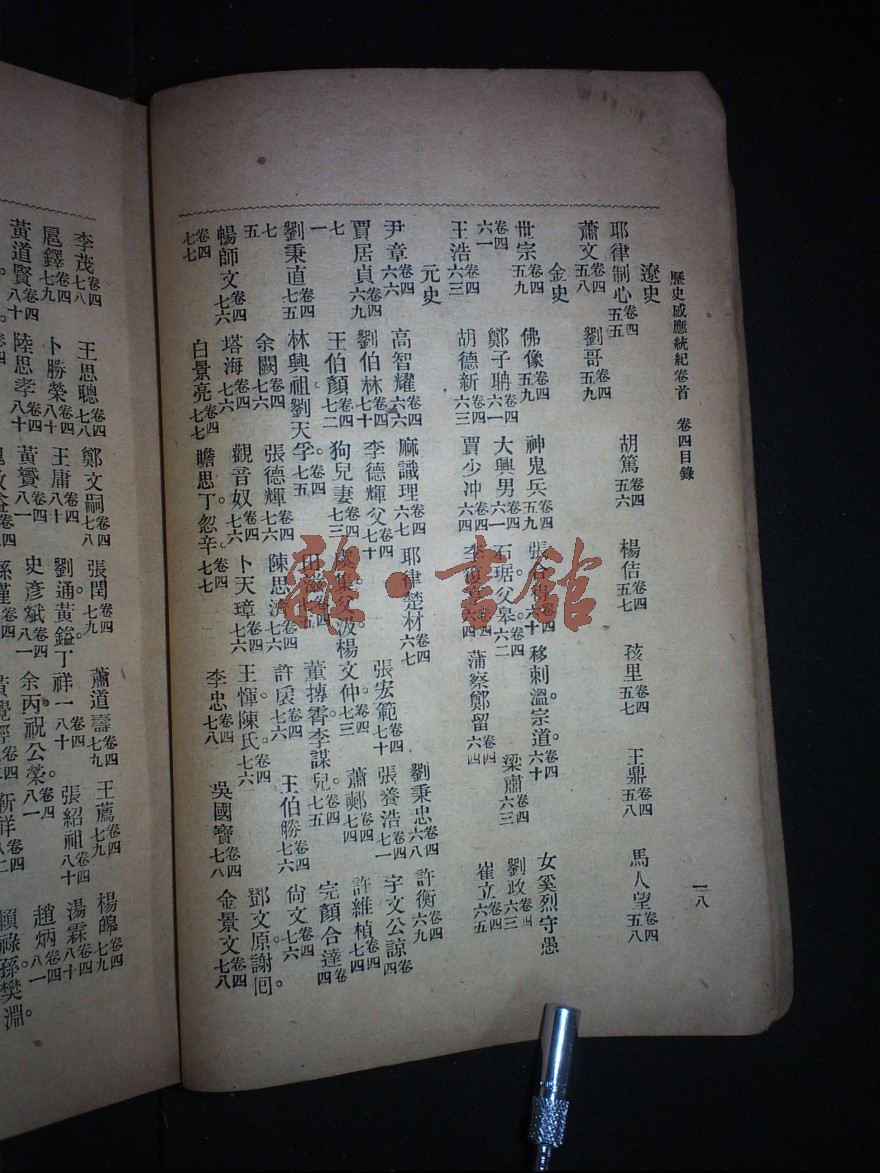 歷史感應統紀卷首　卷四目錄
一八
遼史
耶律制心卷四五五　胡篤卷四五六　楊佶卷四五七　孩里卷四五七　王鼎卷四五八　馬人望卷四五八
蕭文卷四五八　劉哥卷四五九
金史
世宗卷四五九　佛像卷四五九　神鬼兵卷四五九　張合　卷四六十　移刺溫宗道。卷四六十　女奚烈守愚
卷四六一　鄭子聃卷四六一　大興男卷四六一　石琚父皋。卷四六二　梁肅卷四六三　劉政卷四六三
王浩卷四六三　胡德新卷四六三　賈少冲卷四六四　李　卷四六四　蒲察鄭留卷四六四　崔立卷四六五
元史
尹章卷四六六　高智耀卷四六六　麻識理卷四六七　耶律楚材卷四六七　劉秉忠卷四六八　許衡卷四六九
賈居貞卷四六九　劉伯林卷四七十　李德輝父卷四七十　張宏範卷四七十　張養浩卷四七一　宇文公諒卷四
七一　王伯顏卷四七二　狗兒妻卷四七三　父汲楊文仲。卷四七三　蕭㪺卷四七四　許維楨卷四七四
劉秉直卷四七五　林興祖。劉天孚。卷四七五　田　卷四七五　董摶霄。李謀兒卷四七五　完顏合達卷四
七五　余闕卷四七六　張德輝卷四七六　陳思濟卷四七六　許扆卷四七六　王伯勝卷四七六　尙文卷四七六
暢師文卷四七六　塔海卷四七六　觀音奴卷四七六　卜天璋卷四七六　王惲陳氏。卷四七六　鄧文原。謝囘。
卷四七七　白景亮卷四七七　瞻思丁忽辛。卷四七七　李忠卷四七八　吳國寶卷四七八　金景文卷四七八
李茂卷四七八　王思聰卷四七八　鄭文嗣卷四七八　張閏卷四七九　蕭道壽卷四七九　王薦卷四七九　楊皞卷四七九
扈鐸卷四七九　卜勝榮卷四八十　王庸卷四八十　劉通。黃鎰。丁祥一卷四八十　張紹祖卷四八十　湯霖卷四八十
黃道賢卷四八十　陸思孝卷四八十　黃贇卷四八一　史彥斌卷四八一　余丙。祝公榮。卷四八一　趙炳卷四八一
賴祿孫。樊淵。
雜·書館